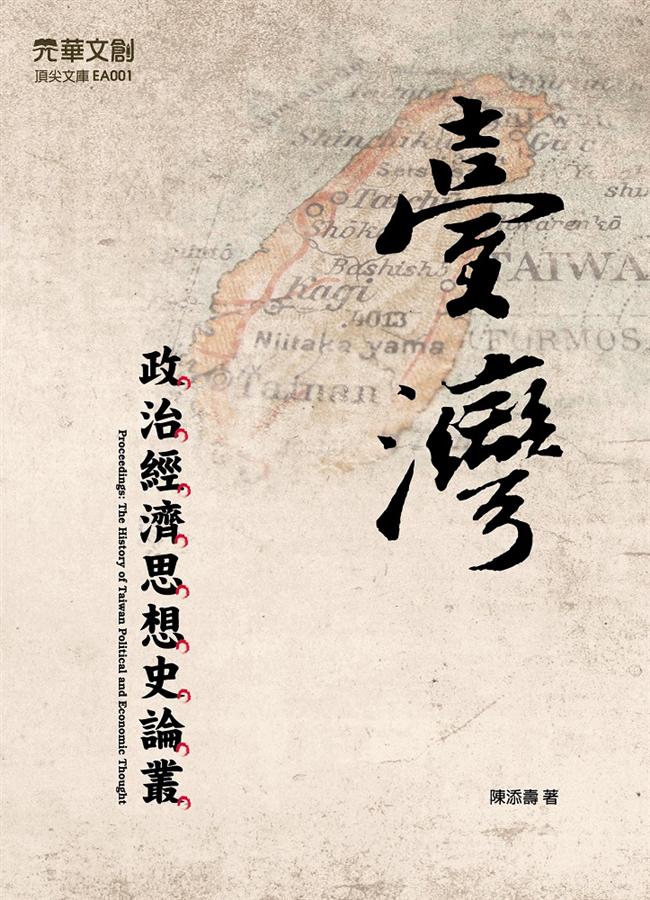 元華文創
頂尖文庫 EA001
臺灣
政治經濟思想史論叢
Proceedings: The History of Taiwan Political and Economic Thought
Shinchiku
Taichū
Shōk
Bashishō
Kagi
.4013
Niitaka yama
Tainan
TAIWA
FORMOS
陳添壽 著